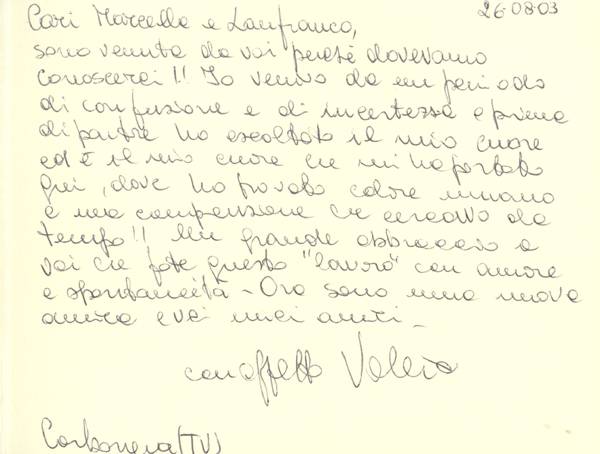 26-08-03
Cari Marcella e Lanfranco,
sono venuta da voi perché dovevamo
conoscerci!! Io venivo da un periodo
di confusione e di incertezza e prima
di partire ho ascoltato il mio cuore
ed è il mio cuore che mi ha portato
qui, dove ho trovato calore umano
e una comprensione che cercavo da
tempo!! Un grande abbraccio a
voi che fate questo "lavoro" con amore
e spontaneità - Ora sono una nuova
amica e voi miei amici -
con affetto Valeria
Carbonera (TV)